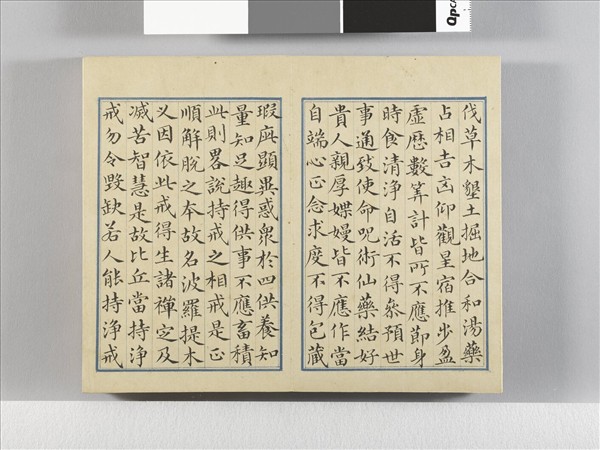 伐草木墾土掘地合和湯藥
占相吉凶仰觀星宿推步盈
虛歷數筭計皆所不應節身
時食清淨自活不得叅預世
事通致使命呪術仙藥結好
貴人親厚媟嫚皆不應作當
自端心正念求度不得包藏
瑕疵顯異惑衆於四供養知
量知足趣得供事不應畜積
此則略說持戒之相戒是正
順解脫之本故名波羅提木
叉因依此戒得生諸禪定及
滅苦智慧是故比丘當持淨
戒勿令毀缺若人能持淨戒
QpCA